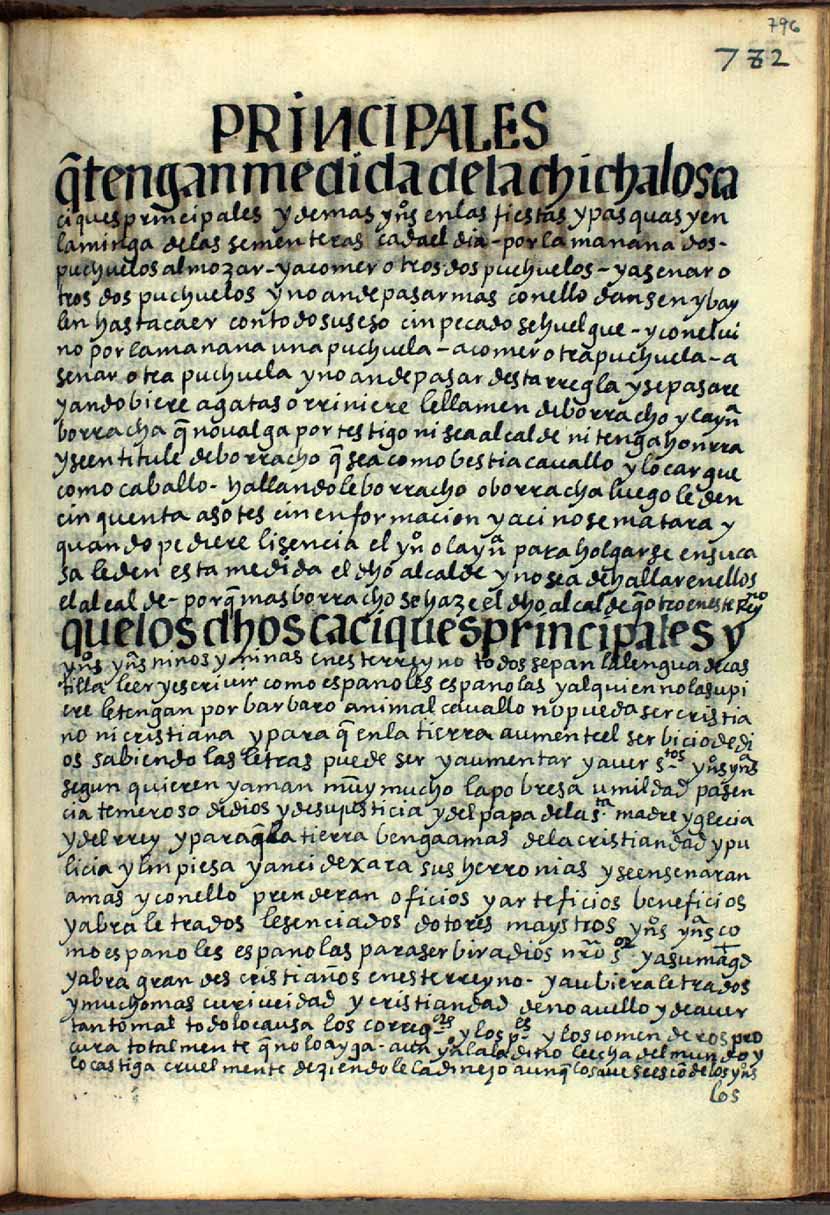 796
732
PRINCIPALES
q̃ tengan medida de la chicha los ca
ciques prinncipales y demas yn̊s en las fiestas y pasquas y en
la minga de las sementeras cada el dia - por la manana dos -
puchuelos almozar - ya comer otros dos puchuelos - ya senar o
tros dos puchuelos y no an de pasar mas con ello dansen y bay
len hasta caer con todo su seso cin pecado se huelgue - y con el ui
no por la manana una puchuela - a comer otra puchuela - a
senar otra puchuela y no an de pasar desta rregla y se pasare
y andobiere a gatas o rriniere le llamen de borracho y la yn̄a
borracha q̃ no ualga por testigo ni sea alcalde ni tenga honrra
y se entitule de borracho q̃ sea como bestia cauallo y lo cargue
como caballo - hallandole borracho o borracha luego le den
cinquenta asotes cin enformacion y aci no se matara y
quando pediere lisencia el yn̊ o la yn̄a para holgarse en su ca
sa le den esta medida el dho alcalde y no sea de hallar en ellos
el alcalde - porq̃ mas borracho se haze el dho alcalde q̃ otro en este rreyno
que los dhos caciques principales y
yn̊s yn̄as ninos y ninas en este rreyno todos sepan la lengua de cas
tilla leer y escriuir como espanoles espanolas y al quien no la supi
ere le tengan por barbaro animal cauallo no pueda ser cristia
no ni cristiana y para q̃ en la tierra aumente el serbicio de di
os sabiendo las letras puede ser y aumentar y auer s.tos yn̊s yn̄as
segun quieren y aman muy mucho la pobresa umildad pasen
cia temeroso di dios y de su justicia y del papa de la s.ta madre yglecia
y del rrey y para q̃ la tierra benga a mas de la cristiandad y pu
licia y limpiesa y anci dexara sus herronias y se ensenaran
a mas y con ello prenderan oficios y arteficios beneficios
y abra letrados lesenciados dotores maystros yn̊s yn̄as co
mo espanoles espanolas para serbir a dios nr̃o s.or y a su mag.d
y abra grandes cristianos en este rreyno - y aubiera letrados
y mucho mas curiucidad y cristiandad de no auello y de auer
tanto mal todo lo causa los correg.ores y los p.es y los comenderos pro
cura totalmente q̃ no lo ayga - a un yn̊ la ladino le echa del mundo y
lo castiga cruelmente deziendole ladinejo aunq̃ los q̃ se es de los yn̊s
los